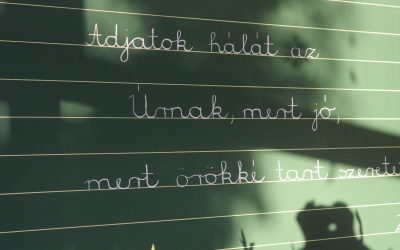 Adjatok hálát az
Úrnak, mert jó,
mert örökké tart szerete